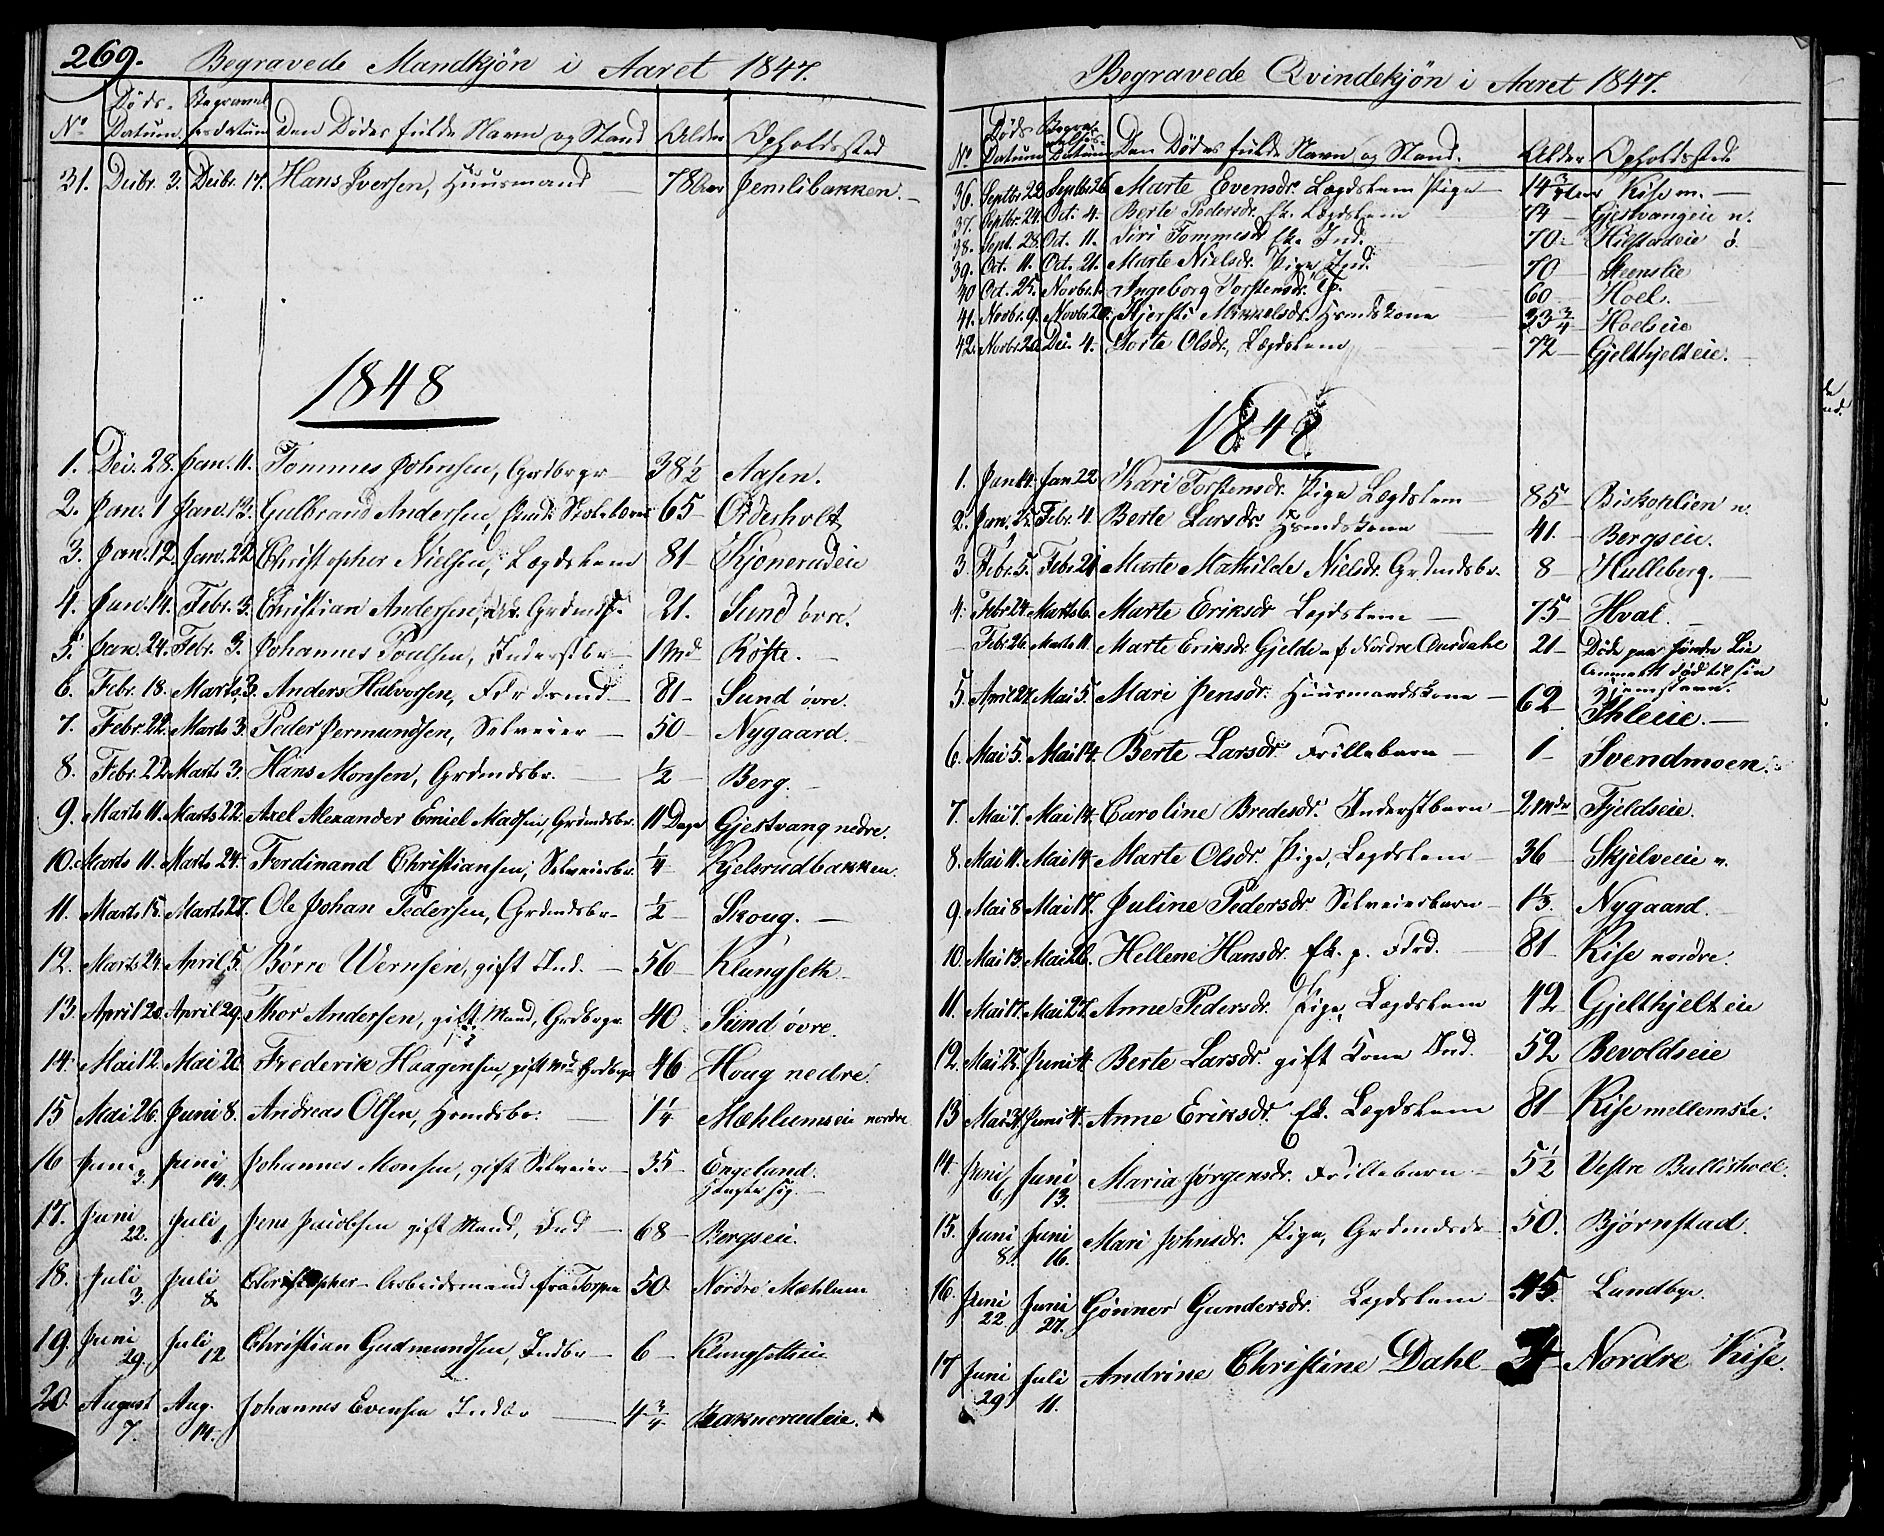 269. Begravede Mandkjøn i Aaret 1847.
No Døds-Datum. Begravelsesdatum Den Dødes fulde Navn og Stand Alder Opholdssted
31. Decbr. 3. Decbr. 17. Hans Iversen, Huusmand 78 Aar Jemlibakken.
1848
1. Dec. 28. Jan. 11. Tommes Johnsen, Grdbrgr 38 1/2 Aasen.
2. Jan. 1 Janv. 13. Gulbrand Andersen, Skolelærer 65 Orderholt
3. Jan. 12. Jan. 22 Christopher Nielsen, Lægdslem 81 Kjonerudeie
4. Jan. 14. Febr. 3. Christian Andersen, Grdmds. 21. Sund övre.
5. Jan. 24. Febr. 3. Johannes Poulsen, Inderstbr 1 Md Röste.
6. Febr. 18. Marts 3. Anders Halvorsen, Fdrdsmd 81 Sund övre.
7. Febr. 22. Marts 3. Peder Jermundsen, Selveier 50 Nygaard.
8. Febr. 22 Marts 3. Hans Monsen, Grdmdsbr. 1/2 Berg.
9. Marts 11. Marts 22. Axel Alexander Emiel Madsen, Grdmdsbr. 11 Dage Gjestvang nedre.
10. Marts 11. Marts 24. Ferdinand Christiansen, Selveierbr. 1/4 Kjelsrudbakken.
11. Marts 15. Marts 27. Ole Johan Pedersen, Grdmdsbr. 1/2 Skoug.
12. Marts 24. April 5. Börre Wernsen, gift Ind. 56 Klungseth
13. April 20. April 29. Thor Andersen, gift Mand, Grdbrgr. 40 Sund övre.
14. Mai 12. Mai 20. Frederik Haagensen, gift Md Grdbrgr 46 Houg nedre.
15 Mai 26. Juni 8. Andreas Olsen, Hsmdsbr. 1 1/4 Mæhlumseie nordre
16 Juni 3. Juni 14. Johannes Monsen, gift Selveier 35 Engelund.
Hængte sig.
17. Juni 22. Juli 1. Jens Jacobsen gift Mand, Ind 68 Bergseie.
18. Juli 3. Juli 8. Christopher Arbeidsmand fra Torpen 50. Nordre Mæhlum
19. Juni 29. Juli 12 Christian Gudmundsen, Indbr 6 Klungsetheie
20. August 7. Aug. 14. Johannes Evensen Indbr 4 3/4 Baknerudeie.
Begravede Qvindekjön i Aaret 1847.
No Døds Datum Begravelses Datum Den Dødes fulde Navn og Stand. Alder Opholdssted
36. Septbr. 22 Septbr 26 Marte Evensdr. Lægdslem Pige 14 Kise m.
37. Septbr. 24. Oct. 4. Berte Pedersdr. Ek. Lægdslem 74 Gjestvangeie n.
38. Sept. 28. Oct. 11. Siri Tommesdr. Ek. Ind. 70. Hilstadeie ö.
39. Oct. 11. Oct. 21. Marte Nielsdr. Pige Ind. 70 Steenslie
40 Oct. 25. Novbr. 1. Ingeborg Torstensdr. 60 Hoel.
41. Novbr. 9. Novbr 20. Kjersti Mikkelsdr. Hsmdskone 33 3/4 Hoelseie
42. Novbr. 20. Dec. 4. Dorte Olsdr., Lægdslem 72 Gjelthjelteie.
1848.
1. Jan 14. Jan 22 Kari Torstensdr. Pige Lægdslem 85 Biskoplien n.
2. Jan. 25. Febr. 4. Berte Larsdr. Hsmdskone 41. Bergseie.
3. Febr. 5. Febr. 21 Marte Mathilde Nielsdr. Grdmdsbr. 8 Hulleberg.
4. Febr 24. Marts 6. Marte Eriksdr Lægdslem 75 Hval.
Febr. 26. Marts 11. Marte Eriksdr. Gjelde af Nordre Aurdahl 21 Döde paa söndre Lie
Anmeldt död til sin Hjemstavn.
5. April 27. Mai 5. Mari Jensdr. Huusmandskone 62 Ihleeie.
6. Mai 5. Mai 14. Berte Larsdr. Frillebarn 1 Svendmoen.
7. Mai 7. Mai 14. Caroline Bredesdr. Inderstbarn 2 Mdr Fjeldseie.
8. Mai 11. Mai 14. Marte Olsdr. Pige, Lægdslem 36 Skjelveeie v.
9. Mai 8. Mai 17. Juline Pedersdr. Selveierbarn Nygaard.
10. Mai 13. Mai 26. Hellene Hansdr. Ek. p. Fdrd. 81 Kise nordre.
11. Mai 17. Mai 27. Anne Pedersdr. Pige, Lægdslem 42 Gjelthjelteie
12. Mai 25. Juni 4. Berte Larsdr. gift Kone Ind. 52 Bevoldseie
13 Mai 31. Juni 4. Anne Eriksdr. Ek. Lægdslem 81 Kise mellemste.
14. Juni 6. Juni 13. Maria Jørgensdr. Frillebarn 5 1/2 Vestre Ballishoel.
15. Juni 8. Juni 16. Mari Johnsdr. Pige, Grdmdsdr 50. Bjørnstad.
16. Juni 22. Juni 27. Gönner Gundersdr. Lægdslem 45. Lundbye.
17 Juni 29 Juli 11. Andrine Christine Dahl Nordre Kise.